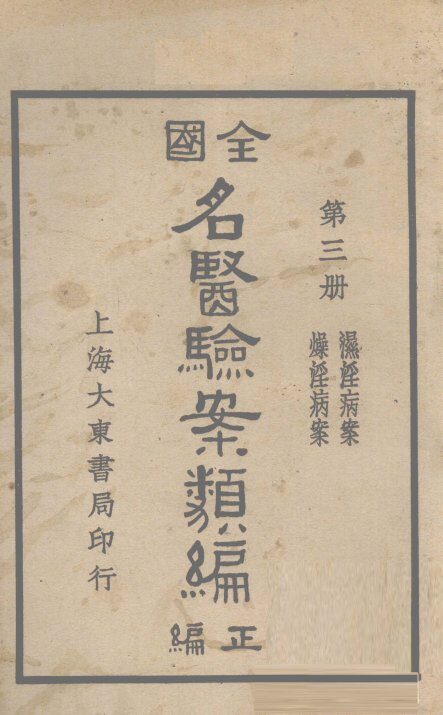 第三册
濕淫病案
燥淫病案
全國
名醫驗案類編
正編
上海大東書局印行